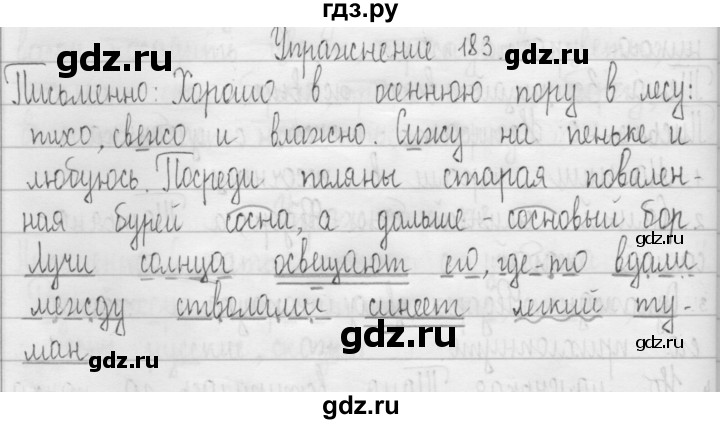 гдз.ру
Упражнение 183.
gdz.ru gdz.ru
Письменно: Хорошо в осеннюю пору в лесу:
тихо, свежо и влажно. Сижу на пеньке и
любуюсь. Посреди поляны старая повален-
gdz.ru gdz.ru
ная бурей сосна, а дальше - сосновый бор
Лучи солнца освещают его, где-то вдали
gdz.ru gdz.ru
между стволами синеет легкий ту-
ман
gdz.ru gdz.ru
gdz.ru